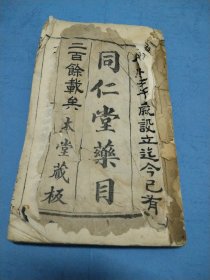 年歲設立迄今已有
同仁堂藥目
二百餘載矣 本堂藏板